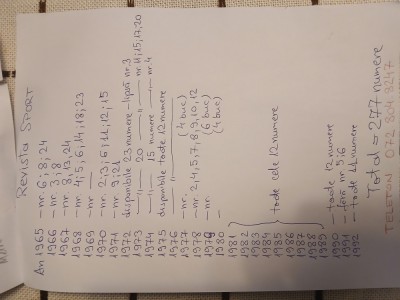 Revista SPORT
An 1965 - nr. 6; 8; 24
1966 - nr. 3; 8
1967 - nr. 8; 13; 24
1968 - nr. 4; 5; 6; 14; 18; 23
1969 - nr.
1970 - nr. 2; 3; 6; 11; 12; 15
1971 - nr. 9; 21
1972 disponibile 23 numere - lipsă nr. 3
1973 —"— 20 —"— nr. 11; 15; 17; 20
1974 —"— 15 numere —"— nr. 4
1975 disponibile toate 12 numere
1976 —"—
1977 - nr. (4 buc)
1978 - nr. 2, 4, 5, 7, 8, 9, 10, 12
1979 - nr. (6 buc)
1980 - (4 buc)
1981
1982
1983
1984
1985 toate cele 12 numere
1986
1987
1988
1989
1990 - toate 12 numere
1991 - fără nr. 5; 6
1992 - toate 12 numere
Total = 277 numere
TELEFON 072 304 3247